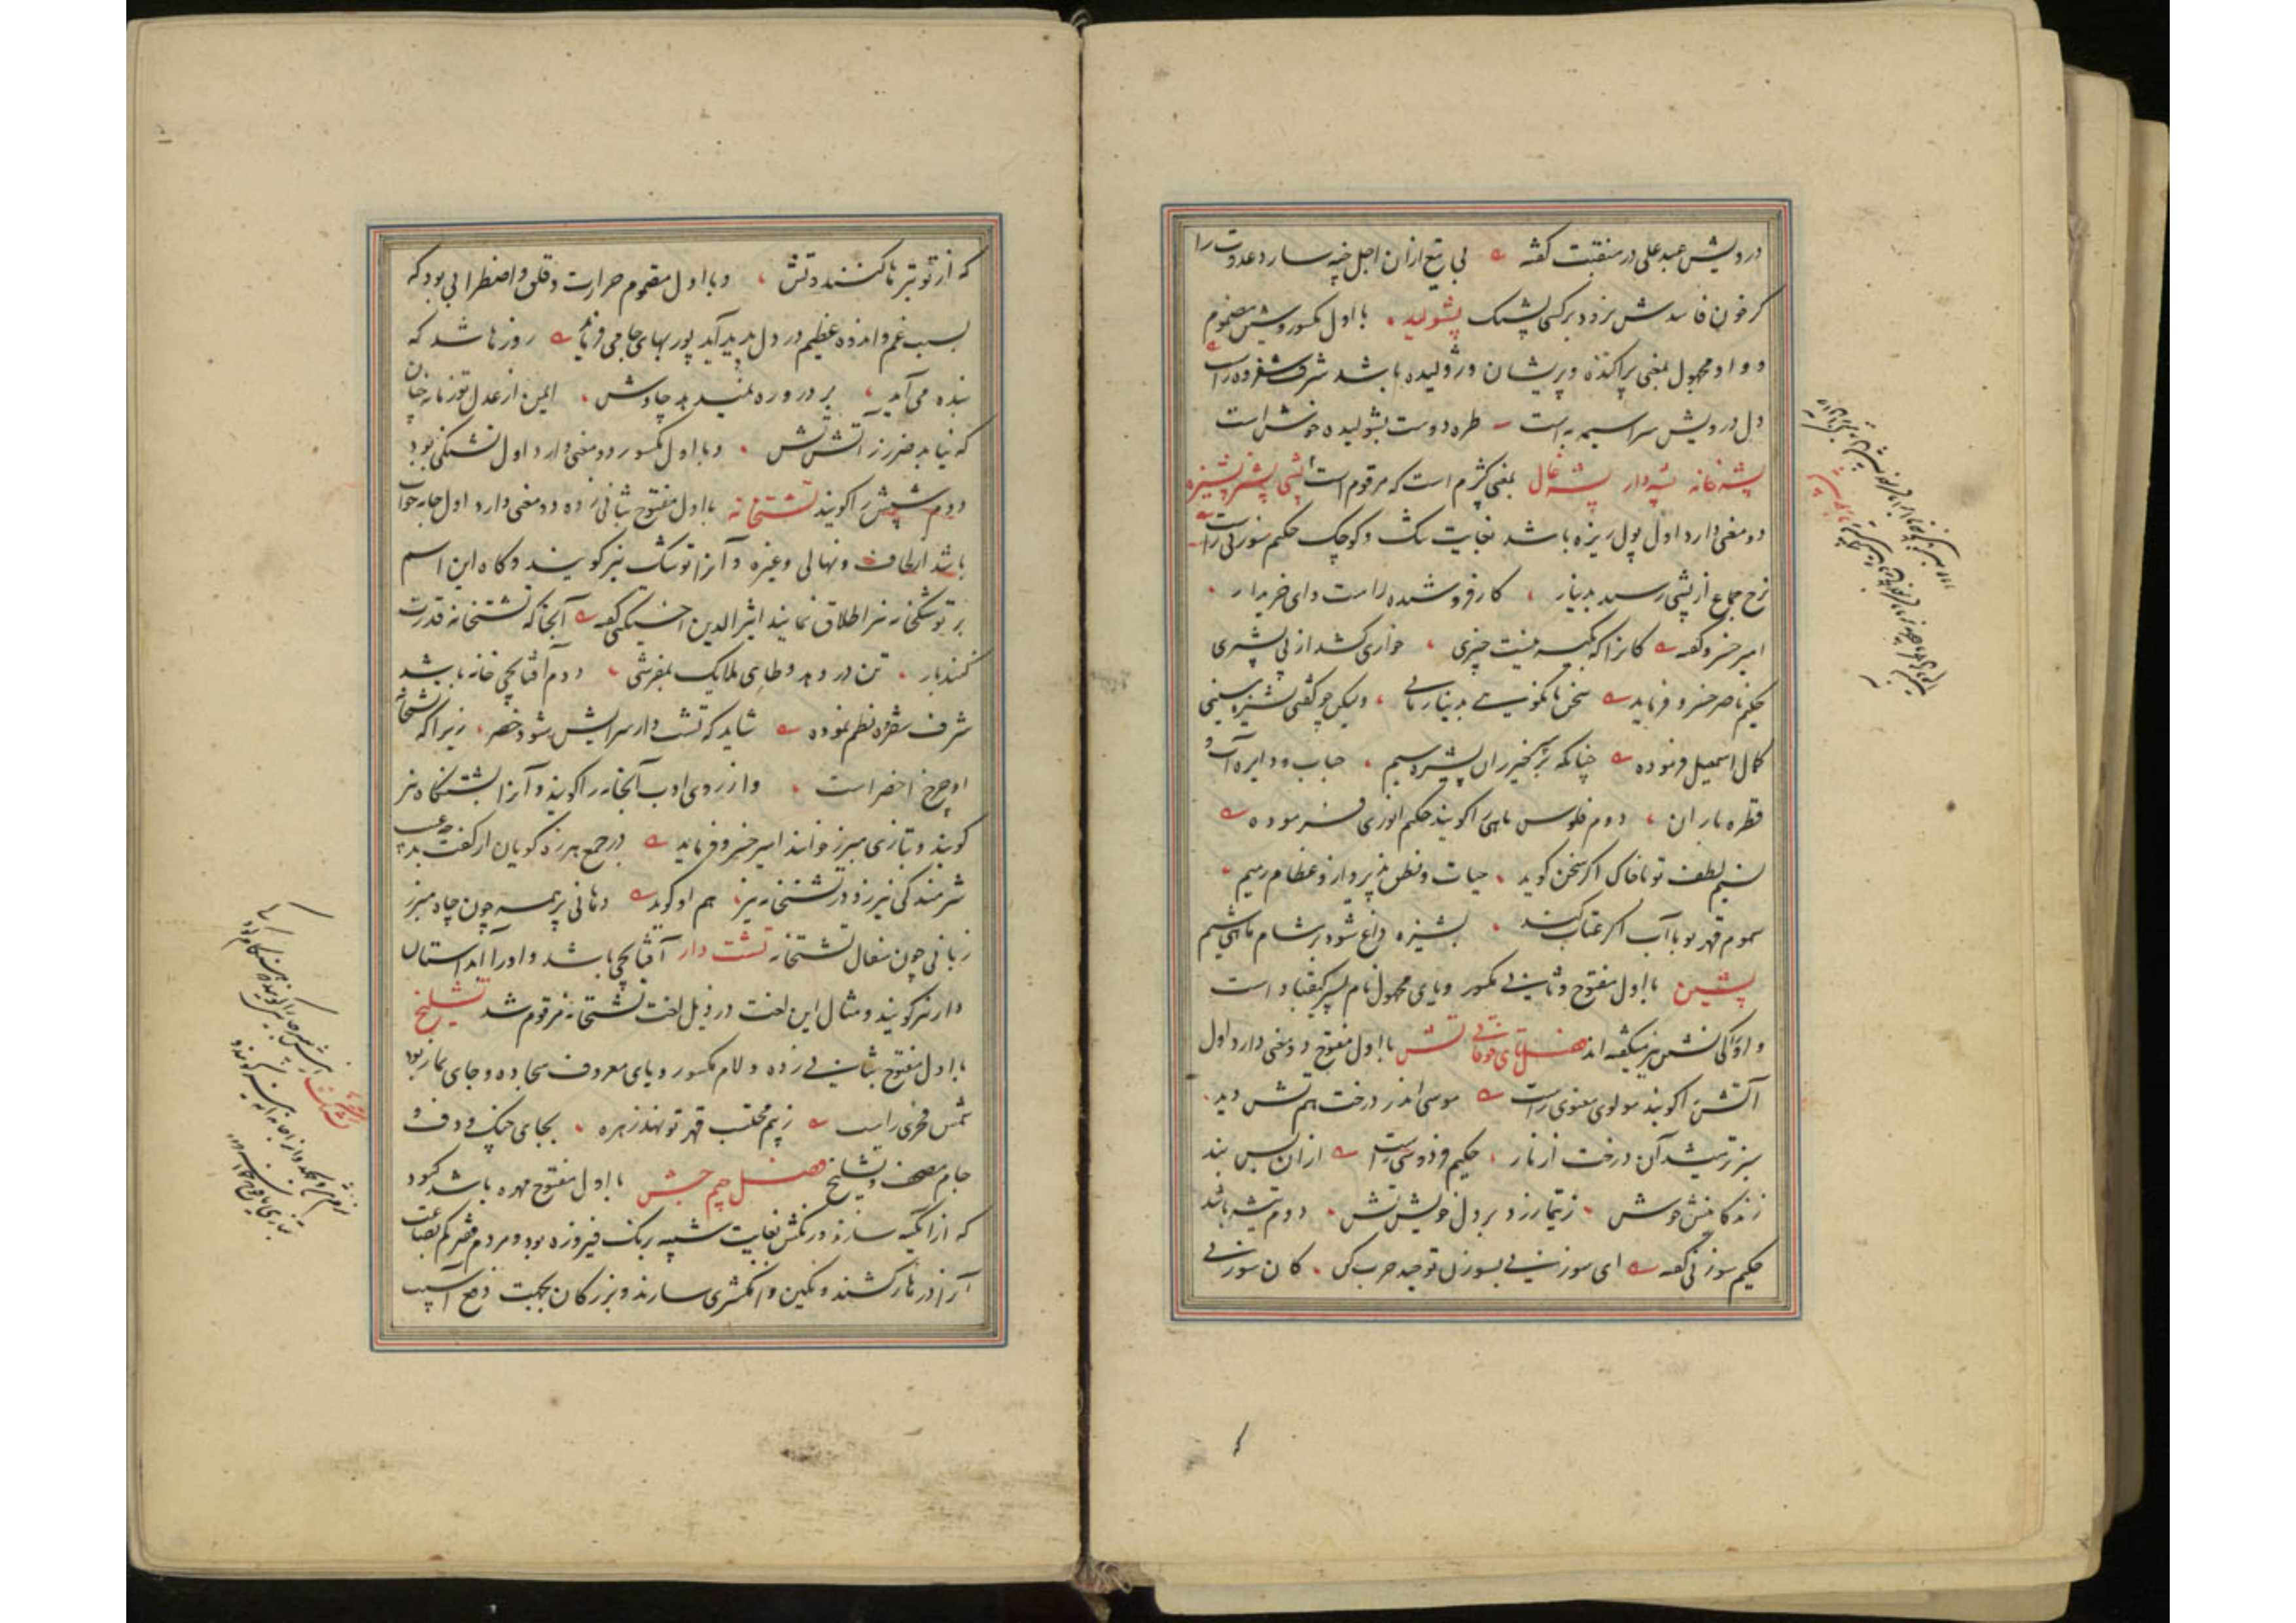 درویش عبد علی در منقبت گفته بی تیغ ازان اجل خپه سازد عدوت را
کز خون فاسدش نرود بر کسی پشنک پشولیده با اول مکسور و شین مضموم
و واو مجهول بمعنی پراکنده و پریشان و ژولیده باشد شرف شفروه راست
دل درویش سراسیمه به است طره دوست پشولیده خوش است
پشه خانه پشه دار پشه غال بمعنی کژم است که مرقوم است پشی پشیز پشیزه
دو معنی دارد اول پول ریزه باشد بغایت تنک و کوچک حکیم سوزنی راست
نرخ جماع از پشی رسید بدینار کار فروشنده راست وای خریدار
امیر خسرو گفته کانرا که بکیسه نیست چیزی خواری کشد از پی پشیزی
حکیم ناصر خسرو فرماید سخن تا نگویی بدینار مانی ولیکن چو گفتی پشیز مسینی
کمال اسمعیل فرموده چنانکه بر سر خیزران پشیزه سیم حباب و دایره آب و
قطره باران دوم فلوس ماهی را گویند حکیم انوری فرموده
نسیم لطف تو با خاک اگر سخن گوید حیات و نطق پذیرد ازو عظام رمیم
سموم قهر تو با آب اگر عتاب کند پشیزه داغ شود بر مشام ماهی شیم
پشین با اول مفتوح و ثانی مکسور و یای مجهول نام پسر کیقباد است
و او را کی پشین نیز میگفته اند فصل تای فوقانی تش با اول مفتوح دو معنی دارد اول
آتش را گویند مولوی معنوی راست موسی اندر درخت هم تش دید
سبزتر میشد آن درخت از نار حکیم فردوسی راست ازان پس بند
زندگانیش خوش ز تیمار زد بر دل خویش تش دوم تیشه باشد
حکیم سوزنی گفته ای سوزنی بسوزن توحید حرب کن کان سوزنی
که از تو تبرها کنند و تش و با اول مضموم حرارت و قلق و اضطرابی بود که
بسبب غم و اندوه عظیم در دل پدید آید پوربهای جامی فرماید روزها شد که
بنده می آید بر در و ره نمیدهد چاوش ایمن از عدل تو زمانه چنان
که نیابد ضرر ز آتش تش و با اول مکسور دو معنی دارد اول تشنگی بود
دوم شپش را گویند تشتخانه با اول مفتوح بثانی زده دو معنی دارد اول جامه خواب
باشد از لحاف و نهالی و غیره و آنرا توشک نیز گویند و گاه این اسم
بر توشکخانه نیز اطلاق نمایند اثیر الدین اخسیکتی گفته آنجا که تشتخانه قدرت
کنند باز تن در دهد وطای ملایک بمفرشی دوم آفتابچی خانه باشد
شرف شفروه نظم نموده شاید که تشت دار سرایش شود خضر زیرا که تشتخانه
او چرخ اخضر است و از روی ادب آبخانه را گویند و آنرا تشتگاه نیز
گویند و بتازی مبرز خوانند امیر خسرو فرماید در جمع هرزه گویان از گفت بد چه عیب
شرمندگی نیرزد در تشتخانه تیز هم او گوید دهانی پر همه چون چاه مبرز
زبانی چون سفال تشتخانه تشت دار آفتابچی باشد و او را آبداستان
دار نیز گویند و مثال این لغت در ذیل لغت تشتخانه مرقوم شد تشلیخ
با اول مفتوح بثانی زده و لام مکسور و یای معروف سجاده و جای نماز بود
شمس فخری راست ز بیم محتسب قهر تو نهد زهره بجای چنگ و دف و
جام مصحف و تشلیخ فصل جیم جش با اول مفتوح مهره باشد کبود
که از آبگینه سازند و رنگش بغایت شبیه برنگ فیروزه بود و مردم فقیر کم بضاعت
آنرا در تار کشند و نگین و انگشتری سازند و بزرگان بجهت دفع آسیب